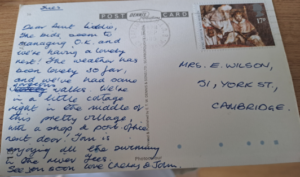 POST CARD
17P
Dear Aunt
She
seem to
managing O.K. and
we're having a lovely
rest! The weather has
been lovely so far,
and we've had some
walks. We're
in a little cottage
right in the middle of
this pretty village,
with a shop & post office
next door! Tom is
enjoying all the swimming
in the river Tees.
See you soon. Love
& John.
MRS. E. WILSON,
31, YORK ST,
CAMBRIDGE.